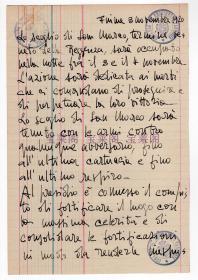 Fiume 3 novembre 1920
Lo scoglio di San Marco, termine
della Reggenza, sarà occupato
nella notte fra il 3 e il 4 novembre
L'azione sarà dedicata ai morti
che ci comandano di proseguire e
di perpetuare la loro vittoria.
Lo scoglio di San Marco sarà
tenuto con le armi contro
qualunque avversario, fino
all'ultima cartuccia e fino
all'ultimo respiro.
Al presidio è commesso il compi-
to di fortificare il luogo con
la massima celerità e di
consolidare le fortificazioni
in modo da renderle